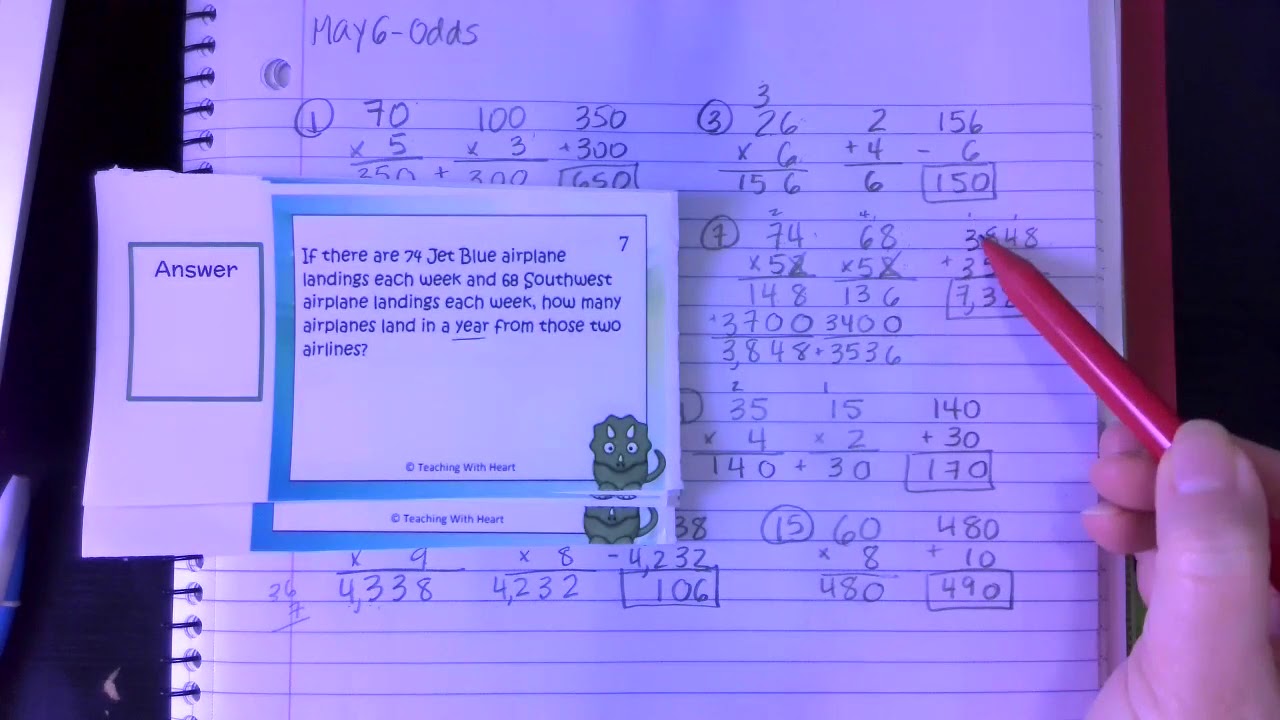 May 6-Odds
① 70 100 350
x 5 x 3 +300
350 + 300 650
③ 3
26 2 156
x 6 +4 - 6
156 6 150
Answer
7
If there are 74 Jet Blue airplane
landings each week and 68 Southwest
airplane landings each week, how many
airplanes land in a year from those two
airlines?
© Teaching With Heart
© Teaching With Heart
⑦ 2 4 1 1
74 68 3848
x52 x52 +
148 136 7,3
+3700 3400
3,848 +3536
2 1
35 15 140
x 4 x 2 + 30
140 + 30 170
38
x 9 x 8 -4,232
4,338 4,232 106
36
7
⑮ 60 480
x 8 + 10
480 490